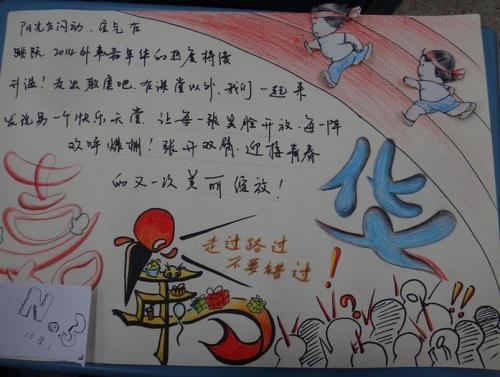 阳光在闪动，空气在
跳跃，2014外嘉年华的热度持续
升温！走出教室吧，在课堂以外，我们一起来
发现另一个快乐天堂，让每一张笑脸开放，每一阵
欢呼爆棚！张开双臂，迎接青春
的又一次美丽绽放！
嘉年华
走过路过
不要错过！
No.3